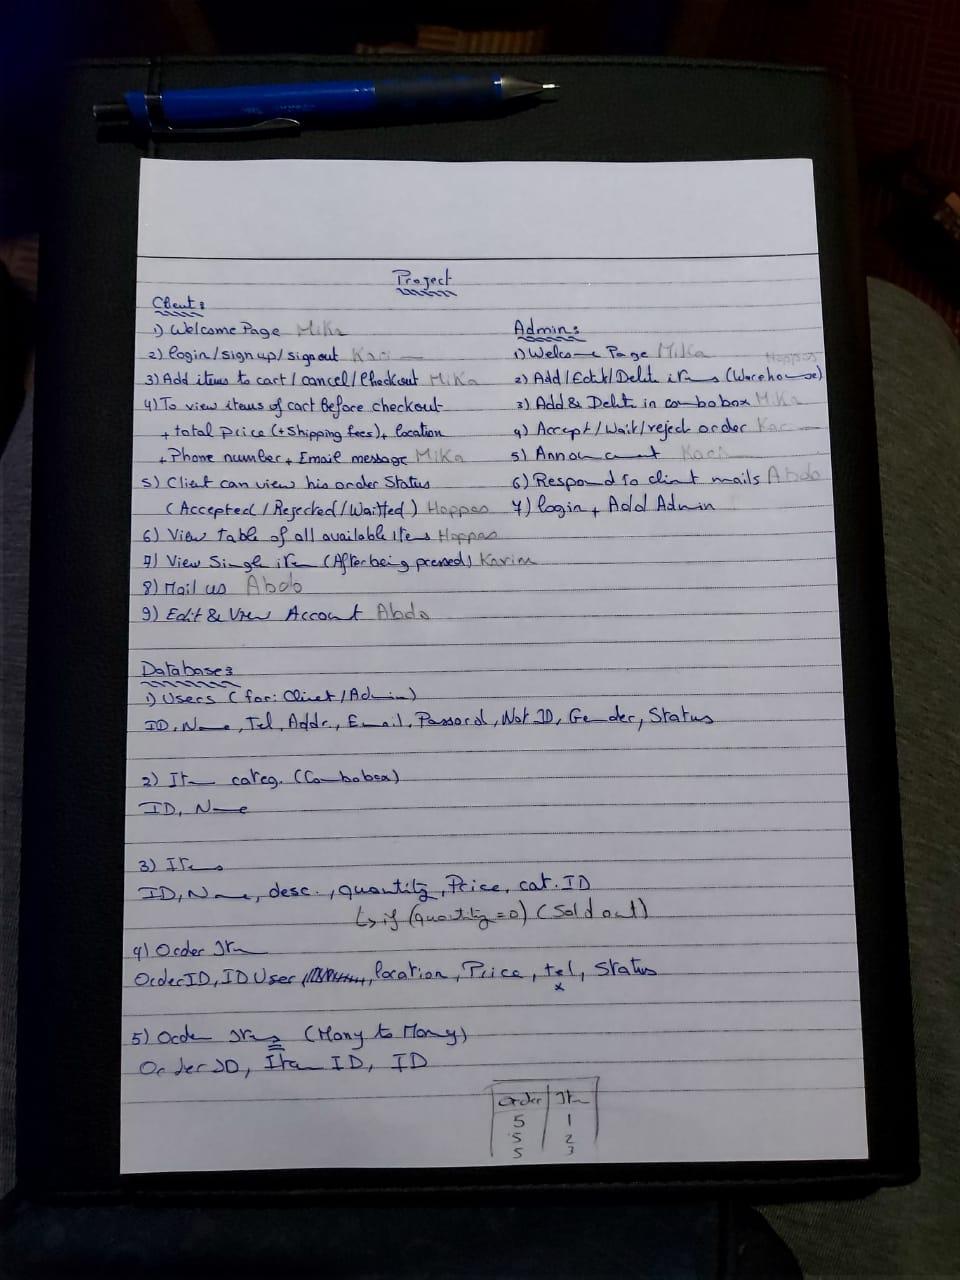 Project
Client:
1) Welcome Page Mika
2) login/sign up/sign out
3) Add items to cart/cancel/Checkout Mika
4) To view items of cart Before checkout
+ total price (+Shipping fees)+ location
+ Phone number + Email message Mika
5) Client can view his order Status
(Accepted/Rejected/Waitted) Hoppos
6) View table of all available items Hoppos
7) View Single item (After being pressed) Karim
8) Mail us Abdo
9) Edit & View Account Abdo
Admin:
1) Welcome Page Mika
Hoppos
2) Add/Edit/Delete items (Warehouse)
3) Add & Delete in combobox Mika
4) Accept/Wait/reject order
5)
6) Respond to client mails Abdo
7) login + Add Admin
Database:
1) Users (for: Client/Admin)
ID, Name, Tel, Addr, Email, Password, Nat ID, Gender, Status
2) Item categ. (Combobox)
ID, Name
3) Items
ID, Name, desc., quantity, Price, cat. ID
↳ if (quantity=0) (Sold out)
4) Order Item
OrderID, ID User, location, Price, tel, Status
x
5) Order Items (Many to Many)
Order ID, Item ID, ID
Order Item
5 1
5 2
5 3